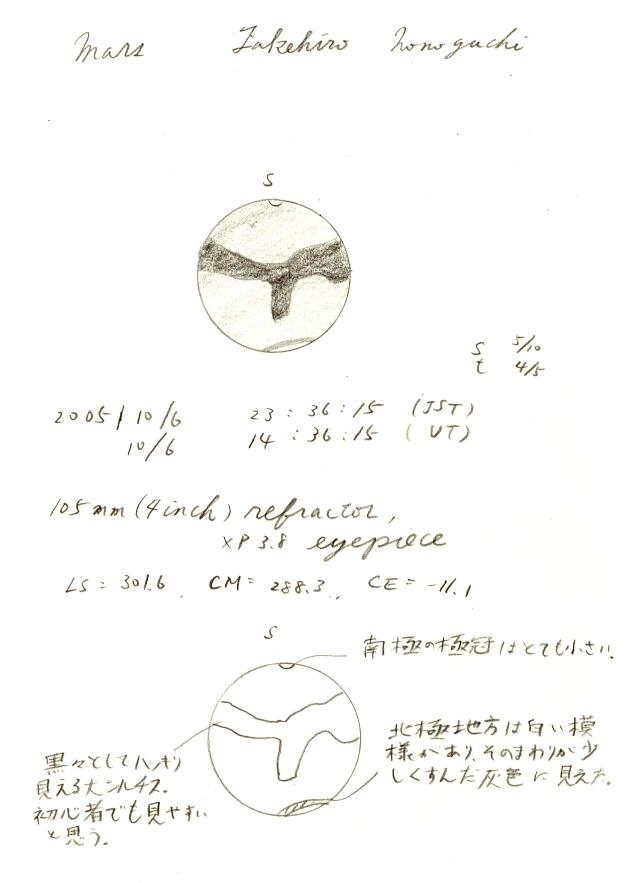 Mars Takehiro Nonoguchi
S
S 5/10
t 4/5
2005/10/6 23:36:15 (JST)
10/6 14:36:15 (UT)
105mm (4inch) refractor,
XP 3.8 eyepiece
LS = 301.6 , CM = 288.3 , CE = -11.1
S
南極の極冠はとても小さい.
北極地方は白い模
様があり、そのまわりが少
しくすんだ灰色に見えた.
黒々としてハッキリ
見える大シルチス.
初心者でも見やすい
と思う.